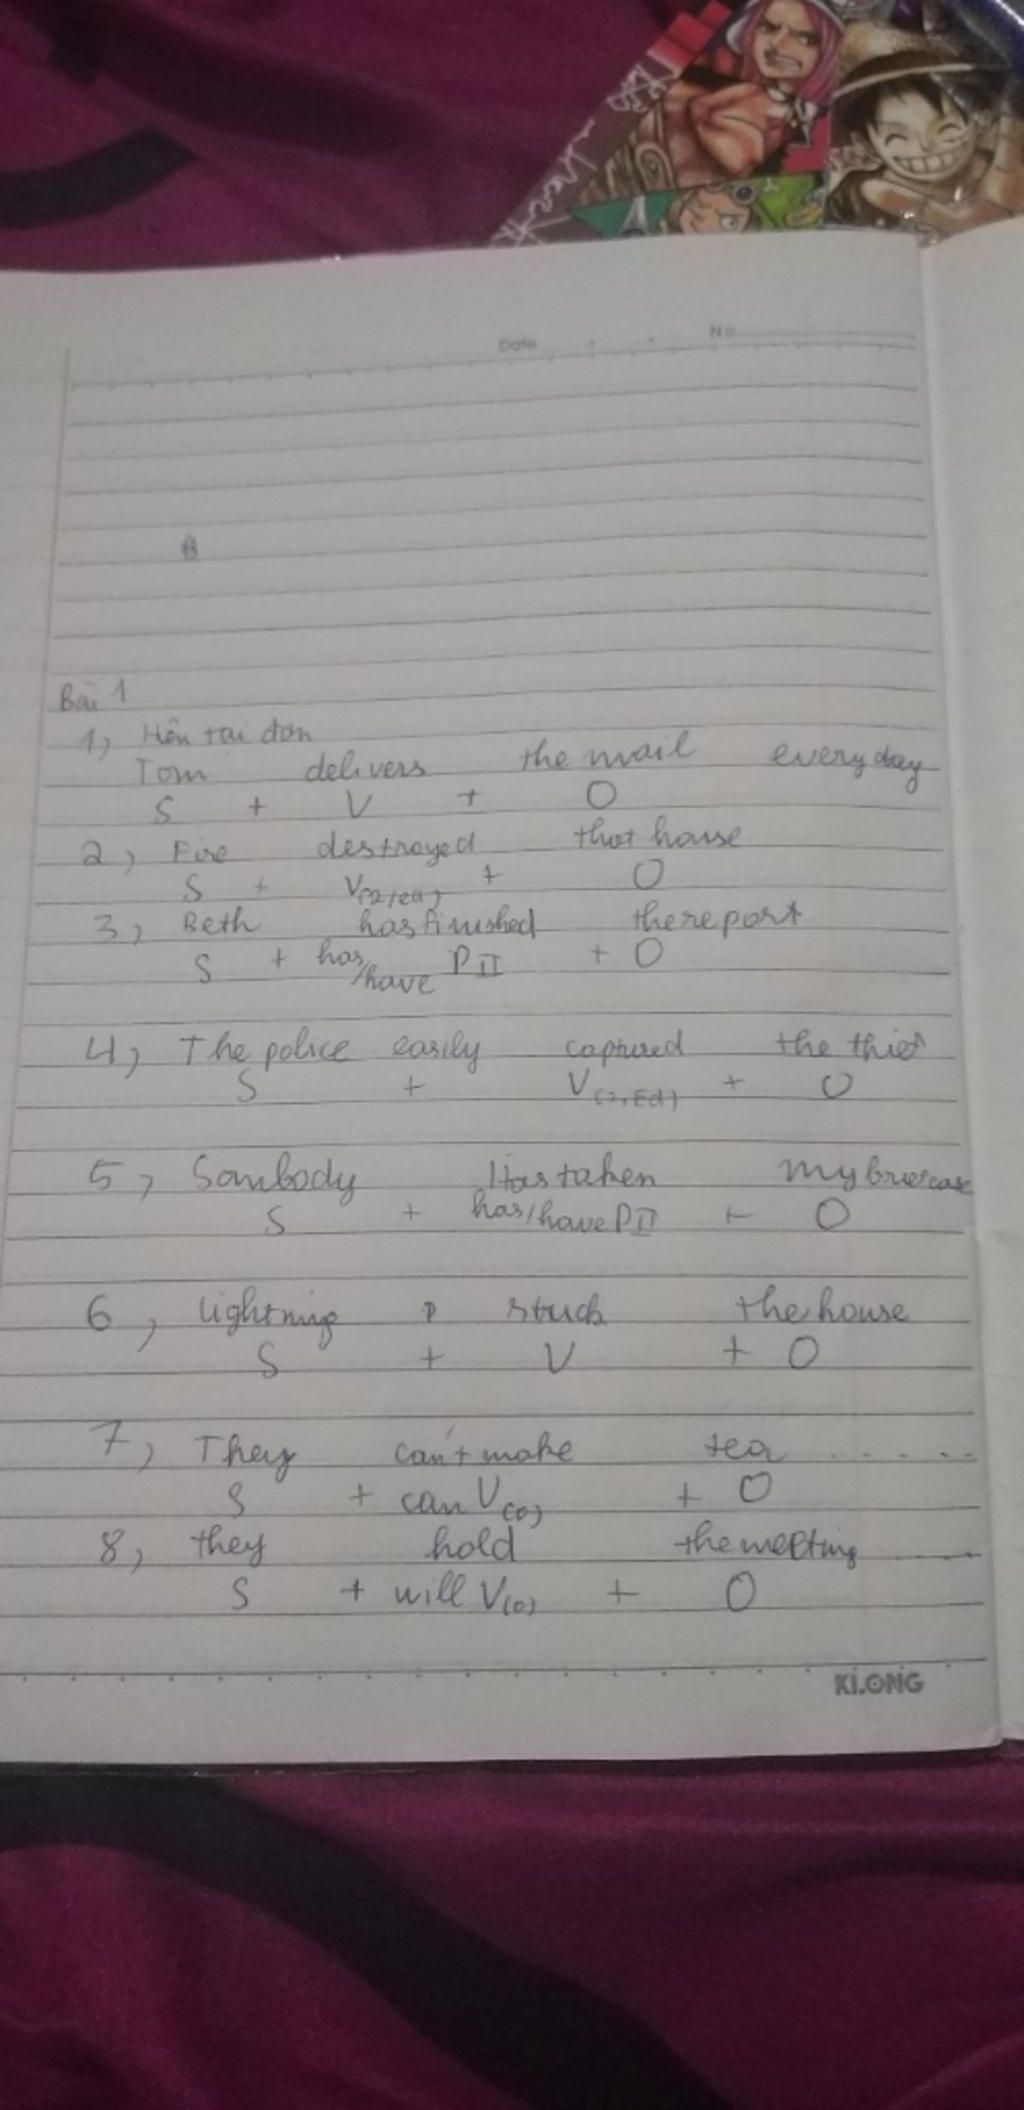 Date No
Bài 1
1, Hiện tại đơn
Tom delivers the mail everyday
S + V + O
2, Fire destroyed that house
S + V(2/ed) + O
3, Beth has finished the report
S + has/have PII + O
4, The police easily captured the thief
S + V(2,Ed) + O
5, Sombody Has taken my briefcase
S + has/have PII + O
6, lightning stuck the house
S + V + O
7, They can't make tea .....
S + can V(o) + O
8, they hold the meeting .....
S + will V(o) + O
KLONG